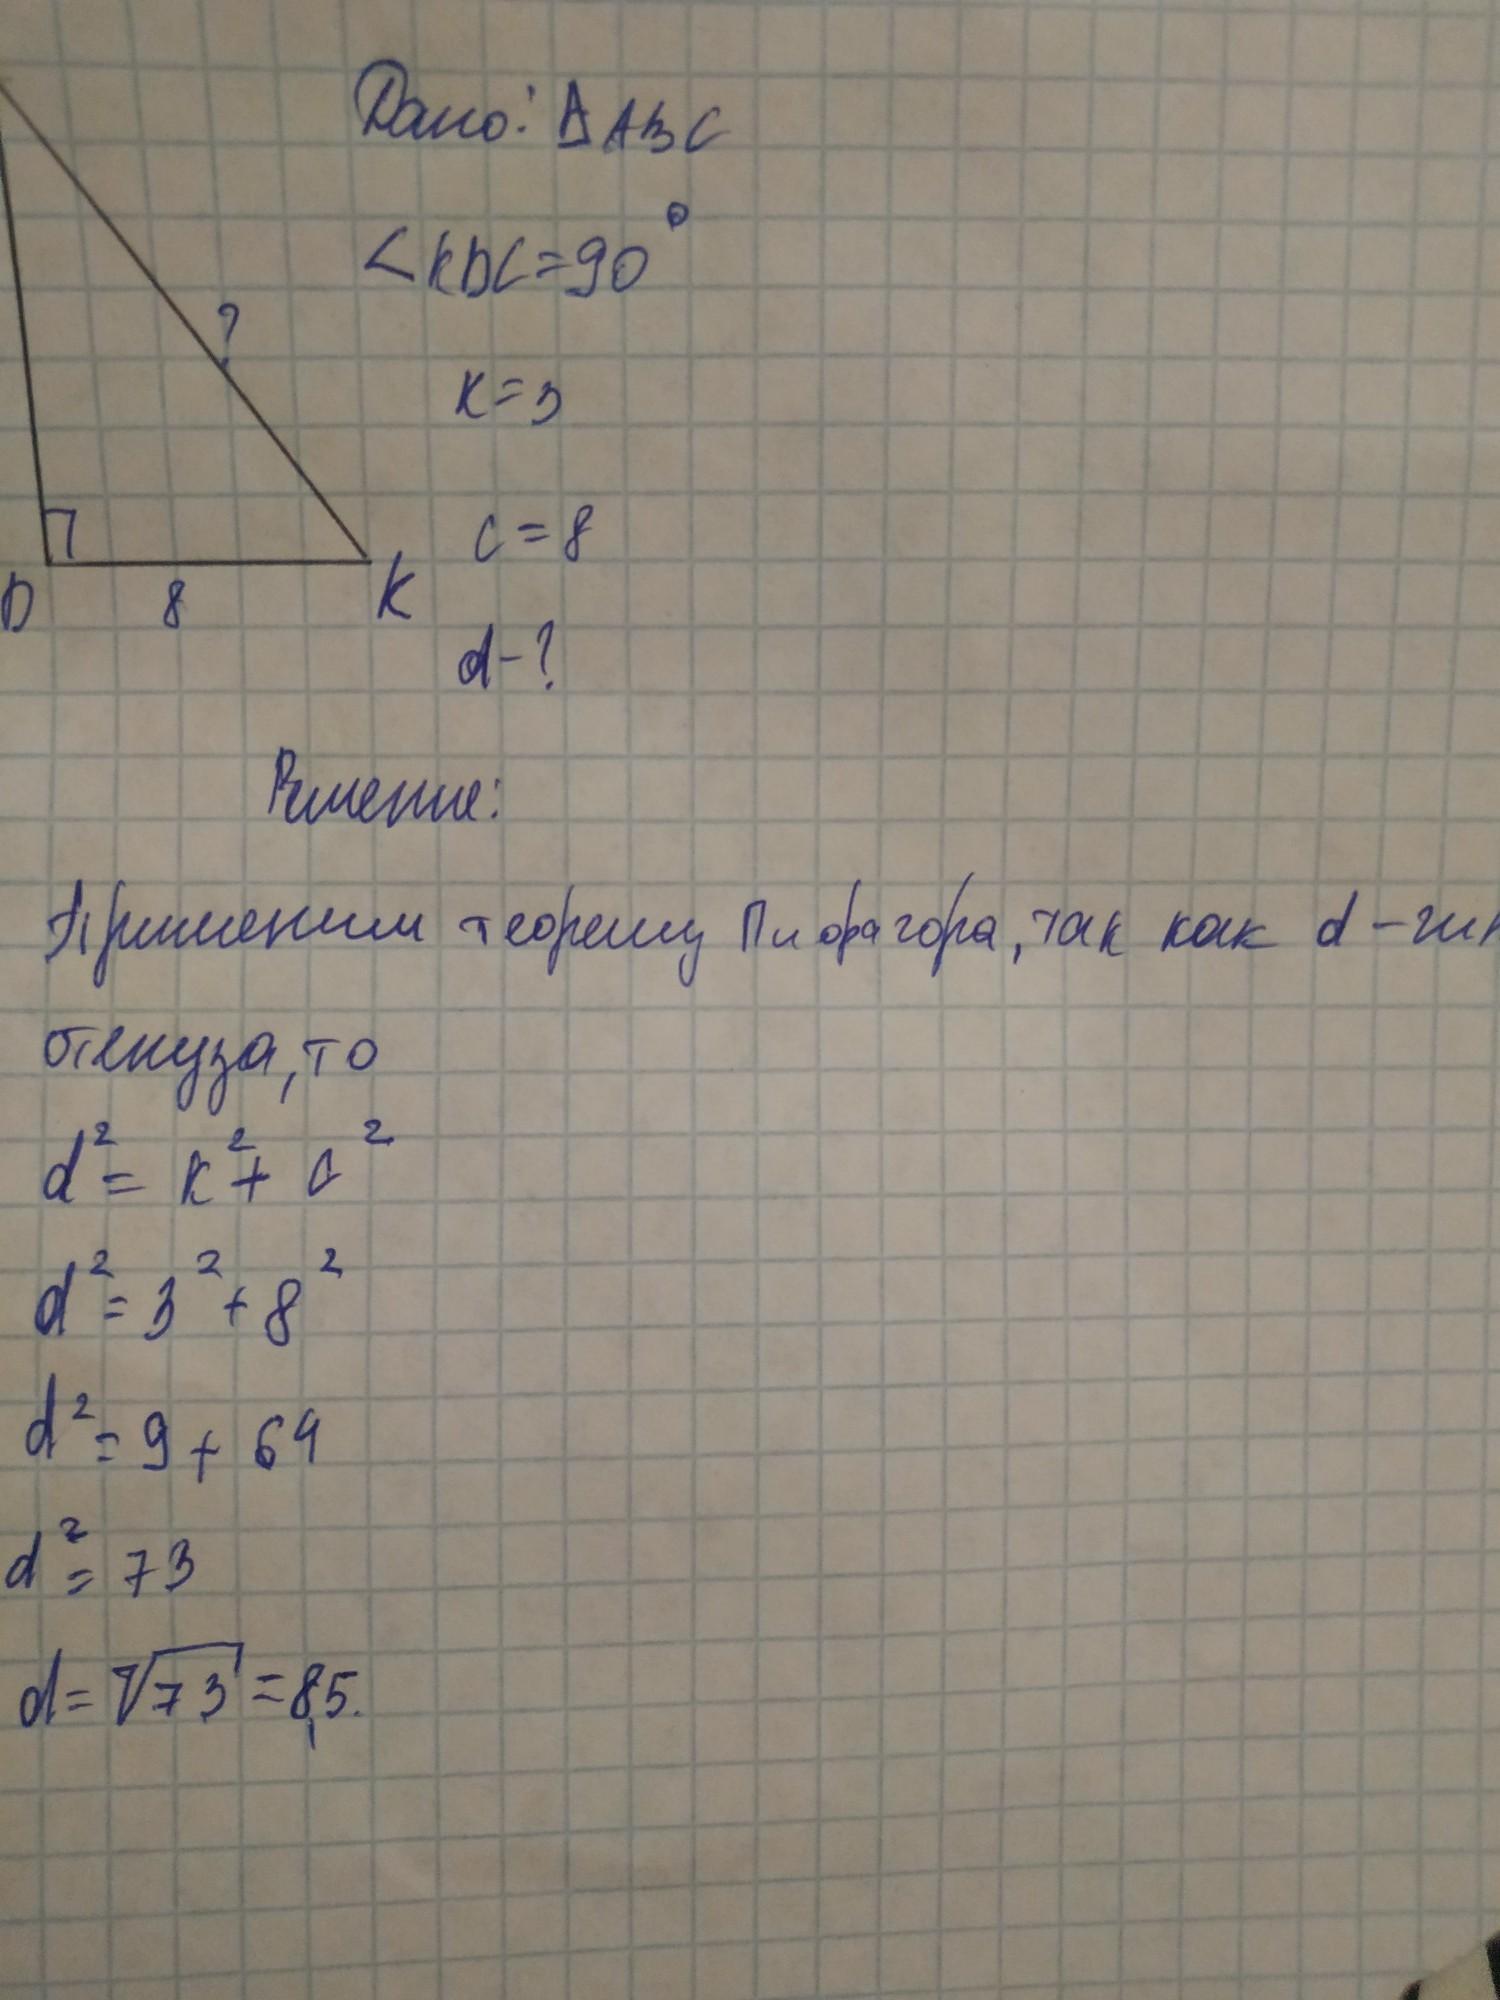 Дано: Δ ABC
∠KDC=90°
?
K=3
c=8
D 8 K
d-?
Решение:
Применим теорему Пифагора, так как d-гип
отенуза, то
d²= k²+ c²
d²= 3²+8²
d²= 9+ 64
d²= 73
d= √73 =8,5.